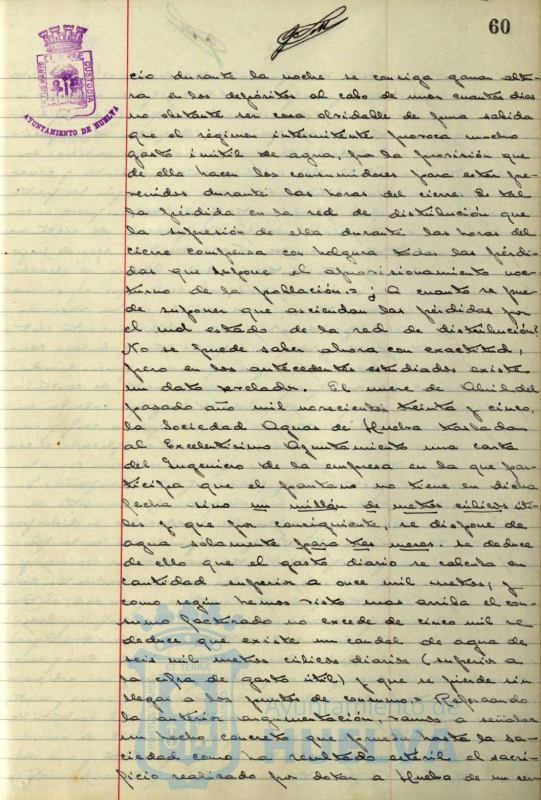 60
PORTUS MARIS ET TERRÆ CUSTODIA
AYUNTAMIENTO DE HUELVA
cio durante la noche se consiga ganar altu-
ra en los depósitos al cabo de unos cuantos dias
no obstante ser cosa olvidable de pura sabida
que el régimen intermitente provoca mucho
gasto inutil de agua, por la provisión que
de ella hacen los consumidores para estar pre-
venidos durante las horas del cierre. Es tal
la pérdida en la red de distribución que
la supresión de ella durante las horas del
cierre compensa con holgura todas las pérdi-
das que supone el aprovisionamiento noc-
turno de la población.= ¿A cuanto se pue-
de suponer que asciendan las pérdidas por
el mal estado de la red de distribución?
No se puede saber ahora con exactitud,
pero en los antecedentes estudiados existe
un dato revelador. El nueve de Abril del
pasado año mil novecientos treinta y cinco,
la Sociedad Aguas de Huelva traslada
al Excelentisimo Ayuntamiento una carta
del Ingeniero de la empresa en la que par-
ticipa que el pantano no tiene en dicha
fecha sino un millón de metros cúbicos úti-
les y que por consiguiente, se dispone de
agua solamente para tres meses. Se deduce
de ello que el gasto diario se calcula en
cantidad superior a once mil metros; y
como según hemos visto mas arriba el con-
sumo facturado no excede de cinco mil se
deduce que existe un caudal de agua de
seis mil metros cúbicos diarios (superior a
la cifra de gasto útil) y que se pierde sin
llegar a los puntos de consumo.= Reforzando
la anterior argumentación, vamos a señalar
un hecho concreto que prueba hasta la sa-
ciedad como ha resultado estéril el sacri-
ficio realizado por dotar a Huelva de un ser-
Ayuntamiento de
HUELVA